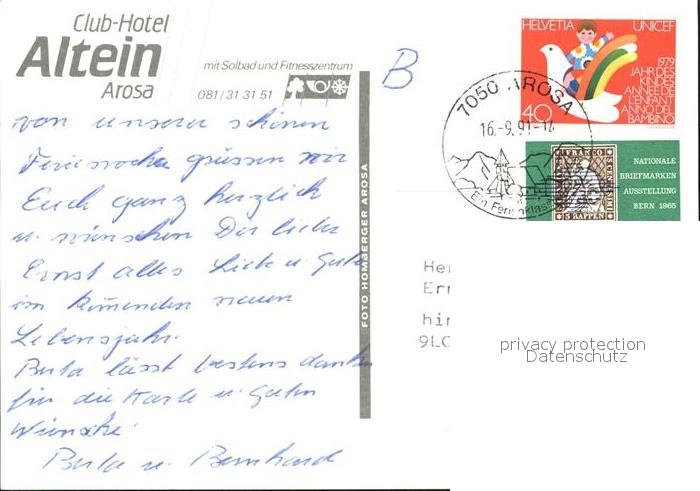 Club-Hotel
Altein
Arosa
mit Solbad und Fitnesszentrum
081/31 31 51
von unserer schönen
Ferienwoche grüssen wir
Euch ganz herzlich
u. wünschen Dir lieber
Ernst alles Liebe u. Gute
im kommenden neuen
Lebensjahr.
Berta lässt bestens danken
für die Karte u. Guten
Wünsche.
Berta u. Bernhard
FOTO HOMBERGER AROSA
B
7050 AROSA
16.-9.91-14
Ein Ferien
HELVETIA UNICEF
1979
JAHR DES
KINDES
ANNÉE DE
L'ENFANT
ANNO DEL
BAMBINO
40
FRANCO
5 RAPPEN
NATIONALE
BRIEFMARKEN
AUSSTELLUNG
BERN 1965
He
Err
hir
privacy protection
Datenschutz